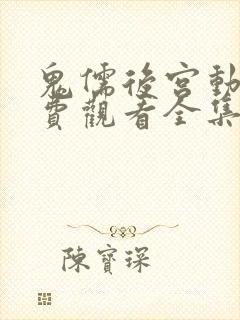 鬼儒後宮動
費觀看全集
陳寶琛